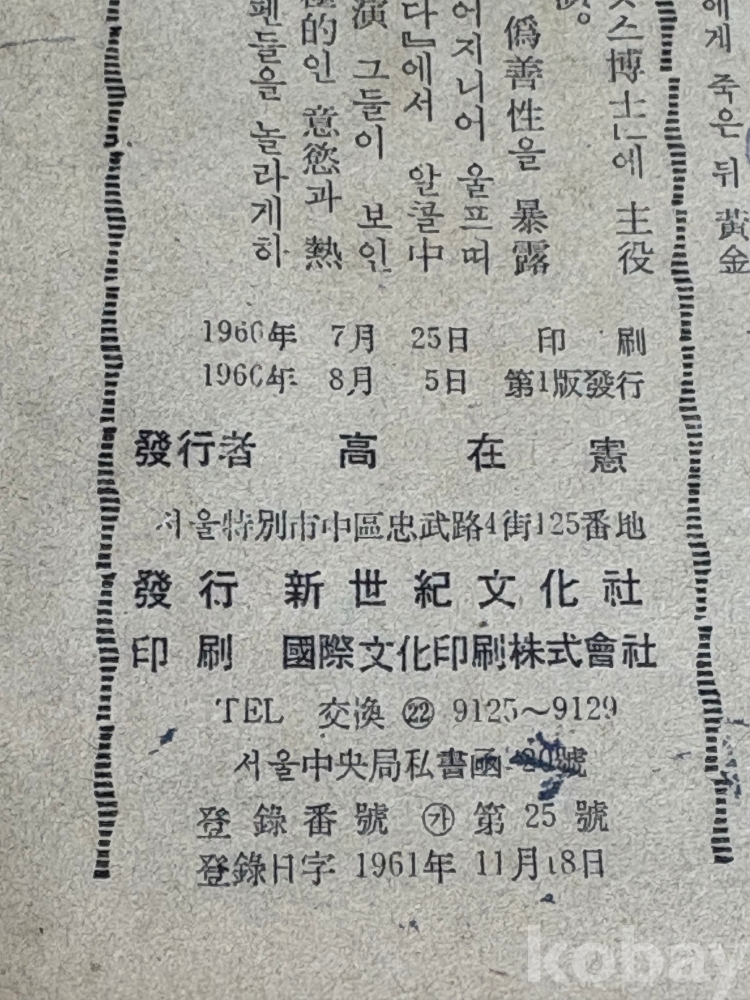 에게 죽은 뒤 黃金
스博士」에 主役
僞善性을 暴露
어지니어 울프띠
다』에서 알콜中
演 그들이 보인
的인 意慾과 熱
팬들을 놀라게하
1966年 7月 25日 印 刷
1966年 8月 5日 第1版發行
發行者 高 在 憲
서울特別市中區忠武路4街125番地
發 行 新 世 紀 文 化 社
印 刷 國際文化印刷株式會社
TEL 交換 ㉒ 9125~9129
서울中央局私書函 20號
登 錄 番 號 ㉮ 第 25 號
登錄日字 1961年 11月18日
kobay